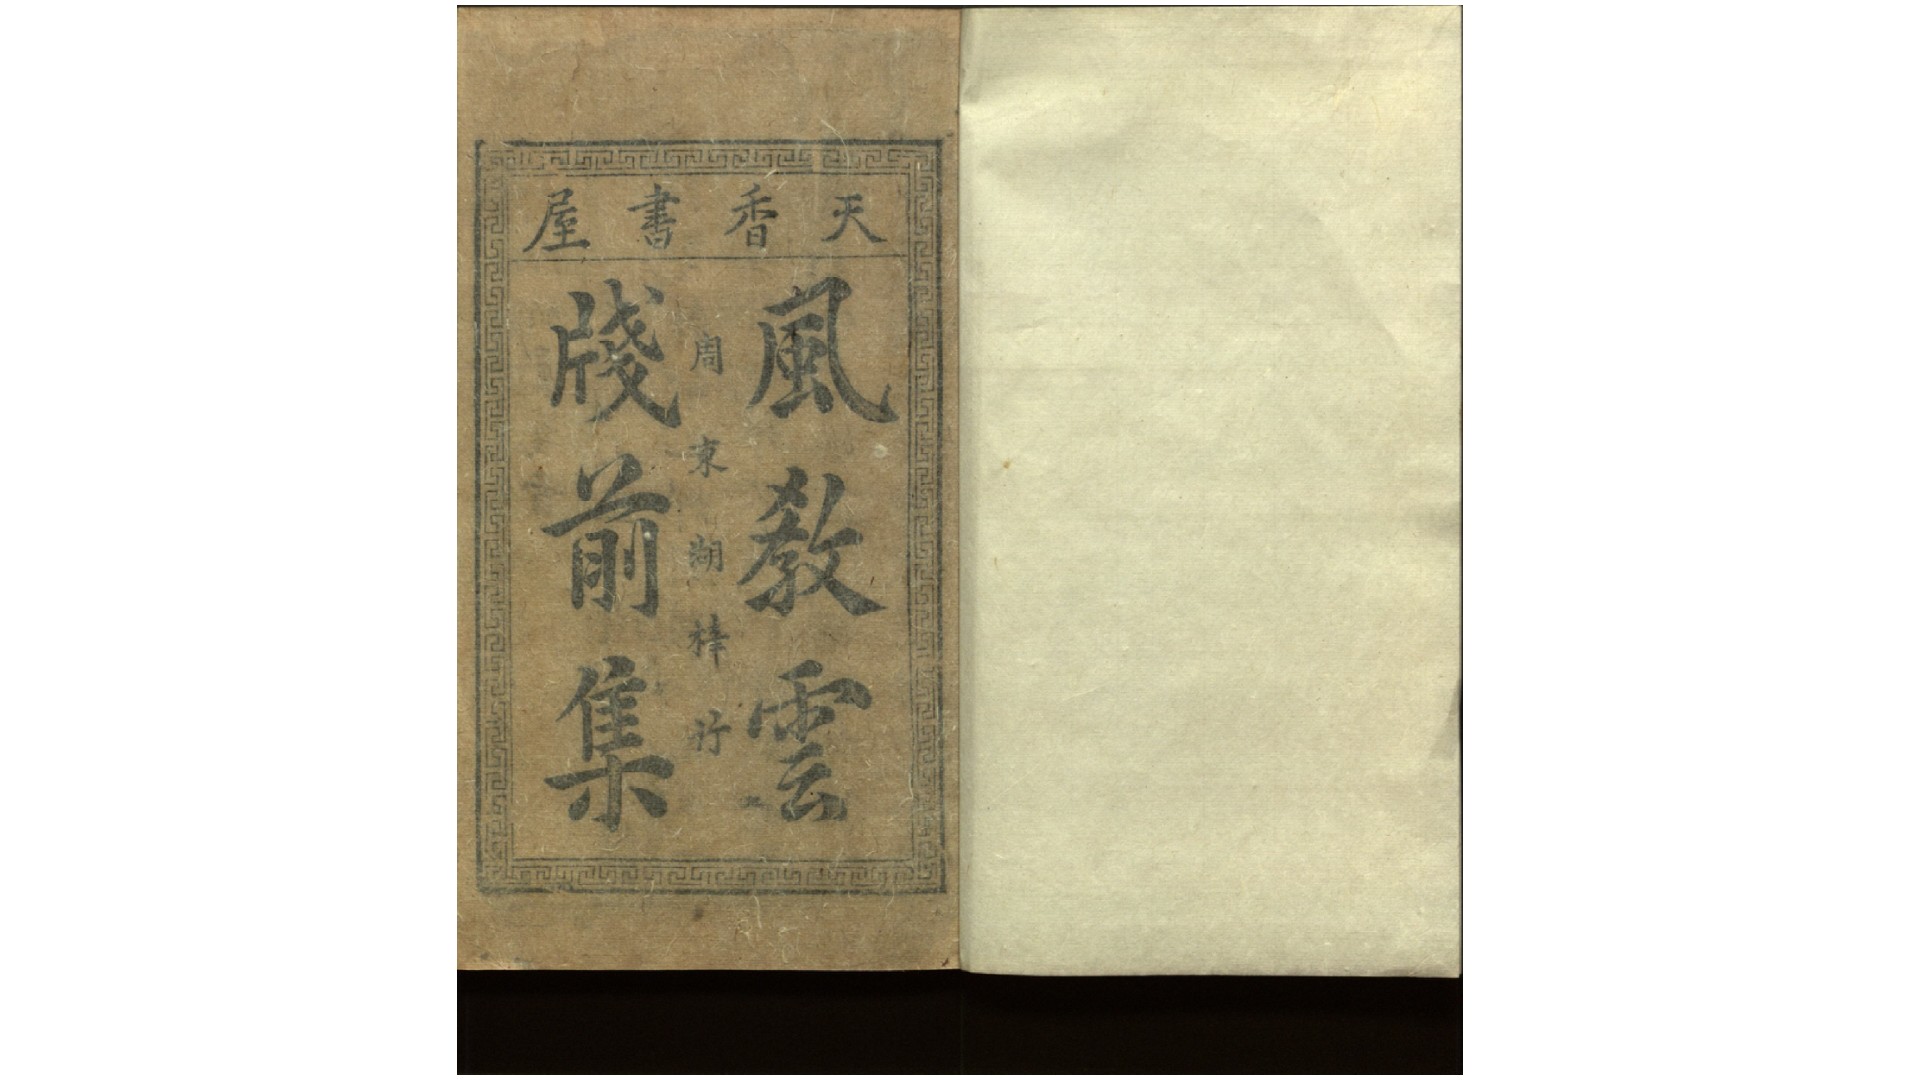 天香書屋
風教雲
周東湖梓行
牋前集